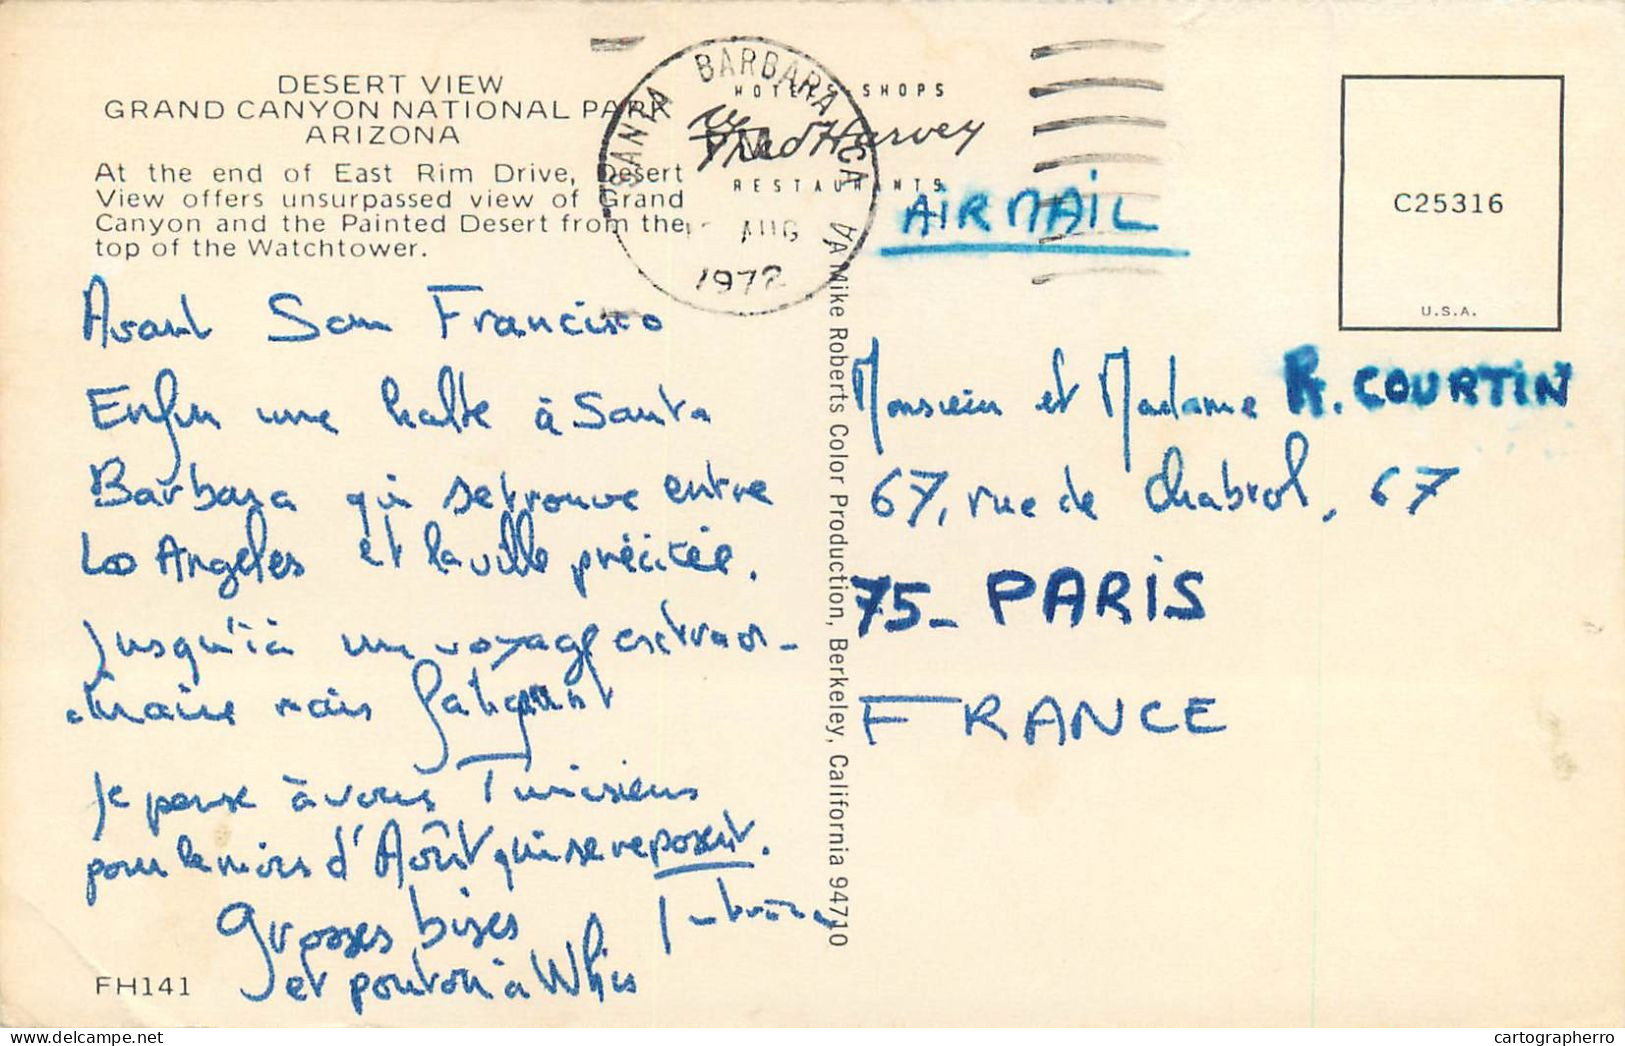 DESERT VIEW
GRAND CANYON NATIONAL PARK
ARIZONA
At the end of East Rim Drive, Desert
View offers unsurpassed view of Grand
Canyon and the Painted Desert from the
top of the Watchtower.
SANTA BARBARA CA
PM
AUG
1972
HOTELS · SHOPS
Fred Harvey
RESTAURANTS
AIRMAIL
C25316
U.S.A.
Avant San Francisco
Enfin une halte à Santa
Barbara qui se trouve entre
Los Angeles et la ville précitée.
Jusqu'ici un voyage extraor-
dinaire mais fatigant
Je pense à vous Tunisiens
pour le mois d'Août qui se reposent.
Grosses bises
et à
FH141
A Mike Roberts Color Production, Berkeley, California 94710
Monsieur et Madame R. COURTIN
67, rue de Chabrol, 67
75_ PARIS
FRANCE
cartographerro